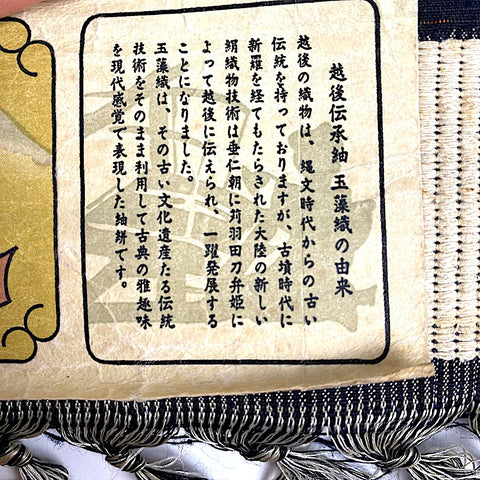 越後伝承紬 玉藻織の由来
越後の織物は、縄文時代からの古い
伝統を持っておりますが、古墳時代に
新羅を経てもたらされた大陸の新しい
絹織物技術は垂仁朝に苅羽田刀弁姫に
よって越後に伝えられ、一躍発展する
ことになりました。
玉藻織は、その古い文化遺産たる伝統
技術をそのまま利用して古典の雅趣味
を現代感覚で表現した紬餅です。